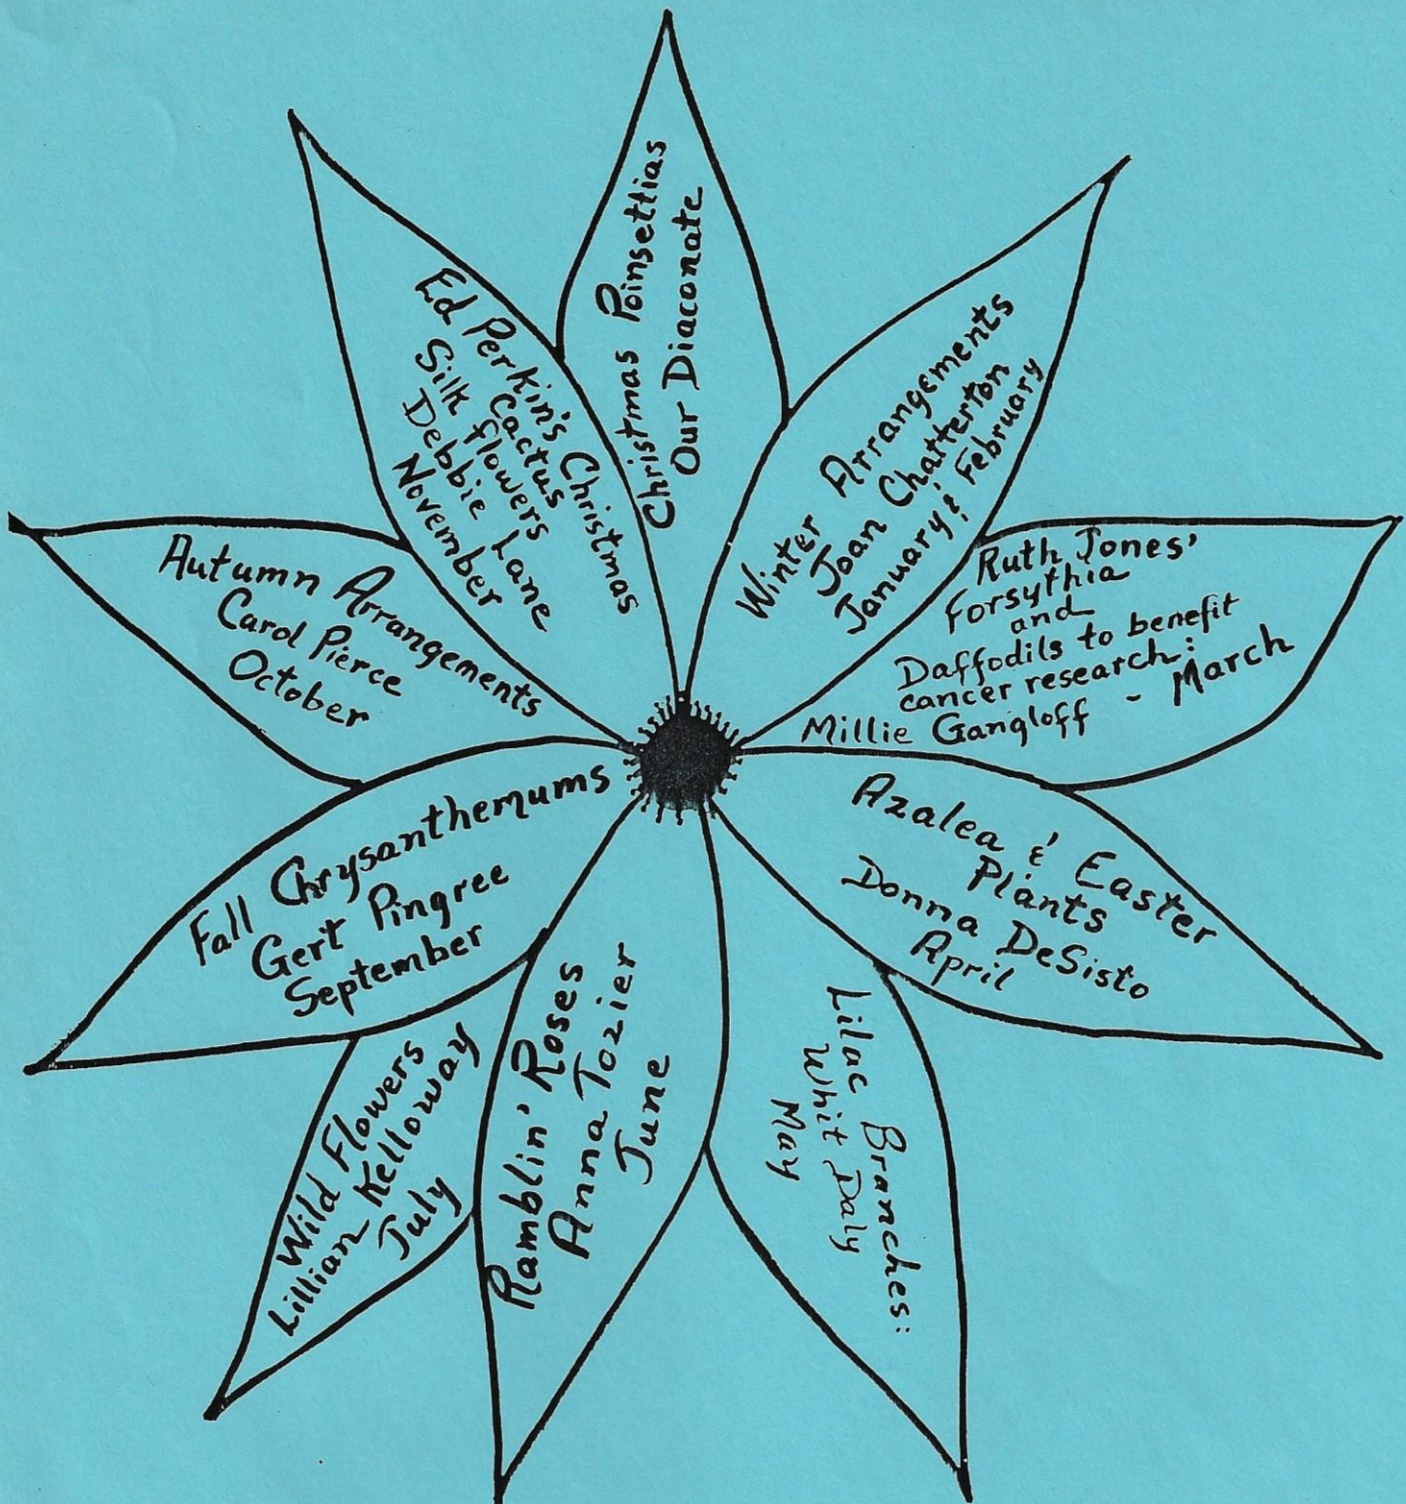 Christmas Poinsettias
Our Diaconate
Winter Arrangements
Joan Chatterton
January & February
Ruth Jones'
Forsythia
and
Daffodils to benefit
cancer research:
Millie Gangloff - March
Azalea & Easter
Plants
Donna DeSisto
April
Lilac Branches:
Whit Daly
May
Ramblin' Roses
Anna Tozier
June
Wild Flowers
Lillian Kelloway
July
Fall Chrysanthemums
Gert Pingree
September
Autumn Arrangements
Carol Pierce
October
Ed Perkin's Christmas
Cactus
Silk flowers
Debbie Lane
November